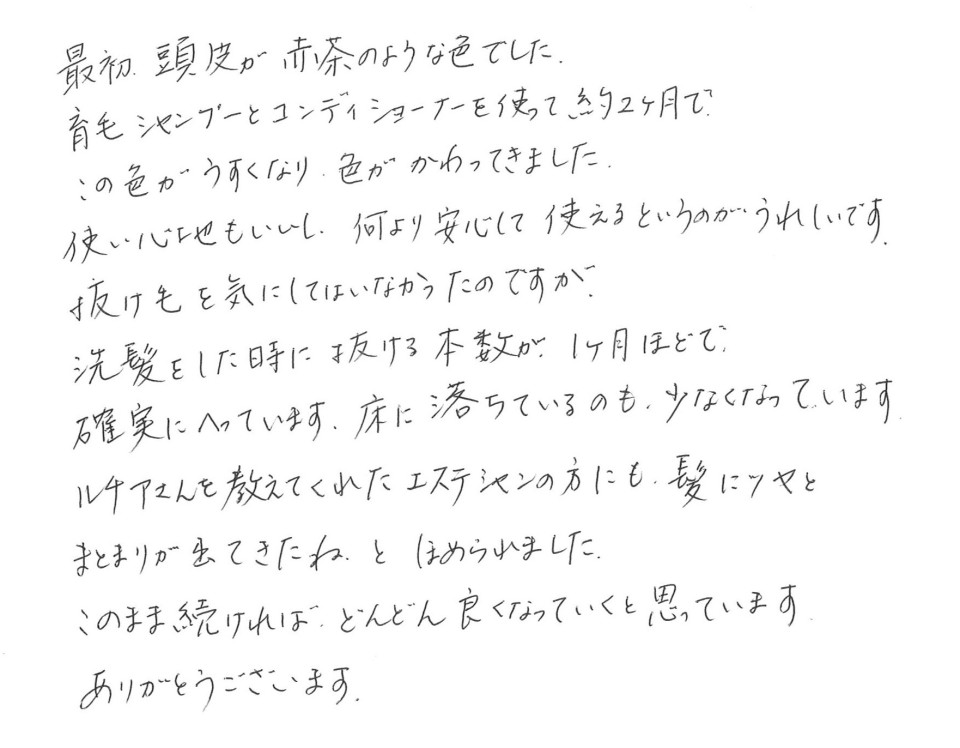 最初、頭皮が赤茶のような色でした。
育毛シャンプーとコンディショナーを使って約2ヶ月で、
この色がうすくなり、色がかわってきました。
使い心地もいいし、何より安心して使えるというのがうれしいです。
抜け毛を気にしてはいなかったのですが、
洗髪をした時に抜ける本数が、1ヶ月ほどで、
確実にへっています。床に落ちているのも、少なくなっています。
ルチアさんを教えてくれたエステシャンの方にも、髪にツヤと
まとまりが出てきたね、とほめられました。
このまま続ければ、どんどん良くなっていくと思っています。
ありがとうございます。